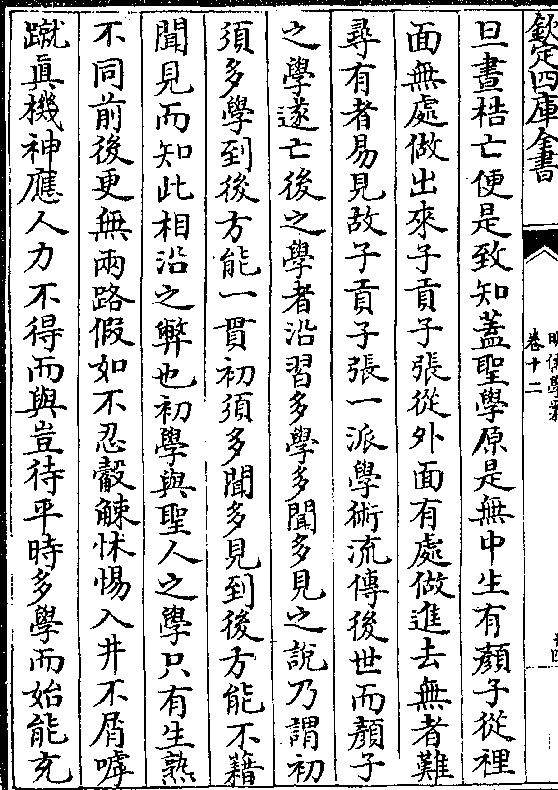 欽定四庫全書
卷十二
旦晝梏亡便是致知蓋聖學原是無中生有顏子從裡
面無處做出來子貢子張從外面有處做進去無者難
尋有者易見故子貢子張一派學術流傳後世而顏子
之學遂亡後之學者沿習多學多聞多見之說乃謂初
須多學到後方能一貫初須多聞多見到後方能不籍
聞見而知此相沿之弊也初學與聖人之學只有生熟
不同前後更無兩路假如不忍觳觫怵惕入井不屑嘑
蹴真機神應人力不得而與豈待平時多學而始能充